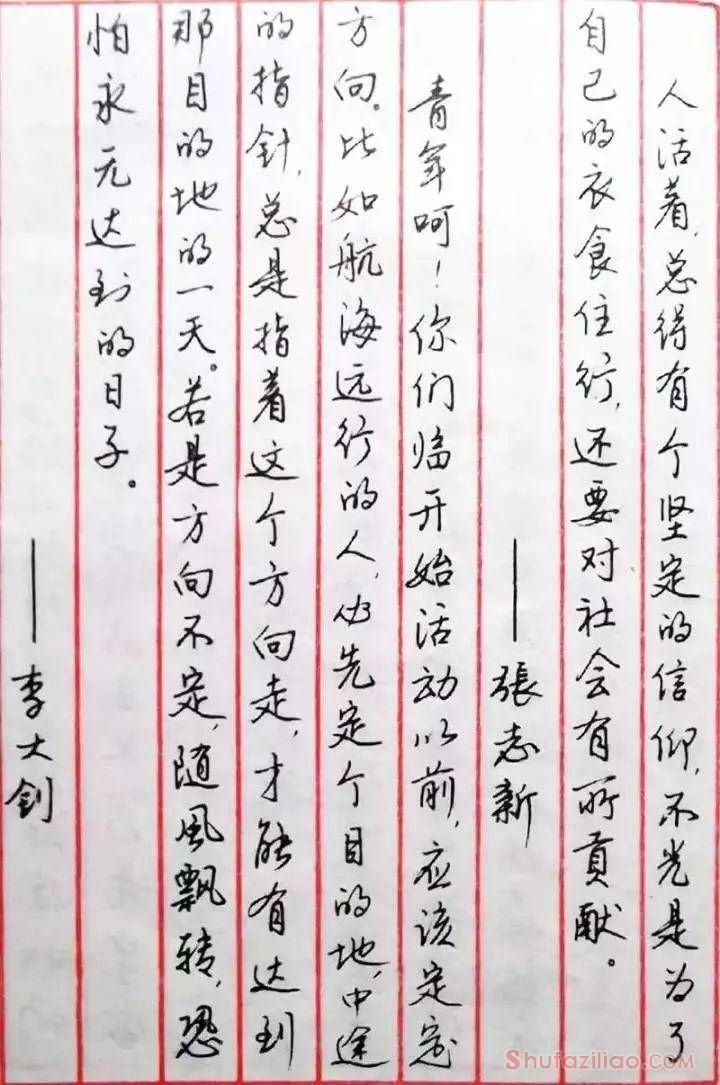 人活着，总得有个坚定的信仰，不光是为了
自己的衣食住行，还要对社会有所贡献。
——張志新
青年呵！你们临开始活动以前，应该定定
方向。比如航海远行的人，必先定个目的地，中途
的指针，总是指着这个方向走，才能有达到
那目的地的一天。若是方向不定，随風飘转，恐
怕永无达到的日子。
——李大釗
Shufaziliao.com